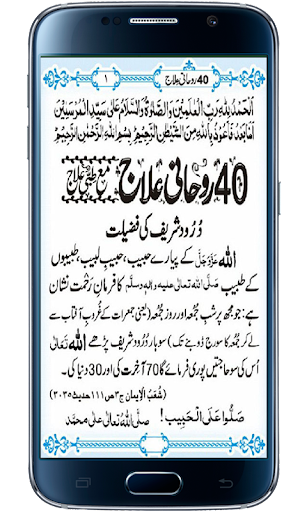 40 روحانی علاج
۱
اَلْحَمْدُ لِلّٰہِ رَبِّ الْعٰلَمِیْنَ وَالصَّلٰوۃُ وَالسَّلَامُ عَلٰی سَیِّدِ الْمُرْسَلِیْنَ
اَمَّا بَعْدُ فَاَعُوْذُ بِاللّٰہِ مِنَ الشَّیْطٰنِ الرَّجِیْمِ بِسْمِ اللّٰہِ الرَّحْمٰنِ الرَّحِیْمِ
40 روحانی علاج مع طبّی علاج
دُرُود شریف کی فضیلت
اللہ عَزَّوَجَلَّ کے پیارے حبیب، حبیبِ لبیب، طبیبوں
کے طبیب صلَّی اللہ تعالٰی علیہ والہ وسلَّم کا فرمانِ رَحْمت نشان
ہے: جو مجھ پر شبِ جُمُعہ اور روزِ جُمُعہ (یعنی جمعرات کے غُروبِ آفتاب سے
لے کر جُمُعہ کا سورج ڈوبنے تک) سو بار دُرُود شریف پڑھے اللہ تَعَالٰی
اُس کی سو حاجتیں پوری فرمائے گا 70 آخرت کی اور 30 دنیا کی۔
(شُعَبُ الْاِیمان ج۳ ص۱۱۱ حدیث۳۰۳۵)
صَلُّوا عَلَی الْحَبِیب! صلَّی اللہُ تعالٰی علٰی محمَّد